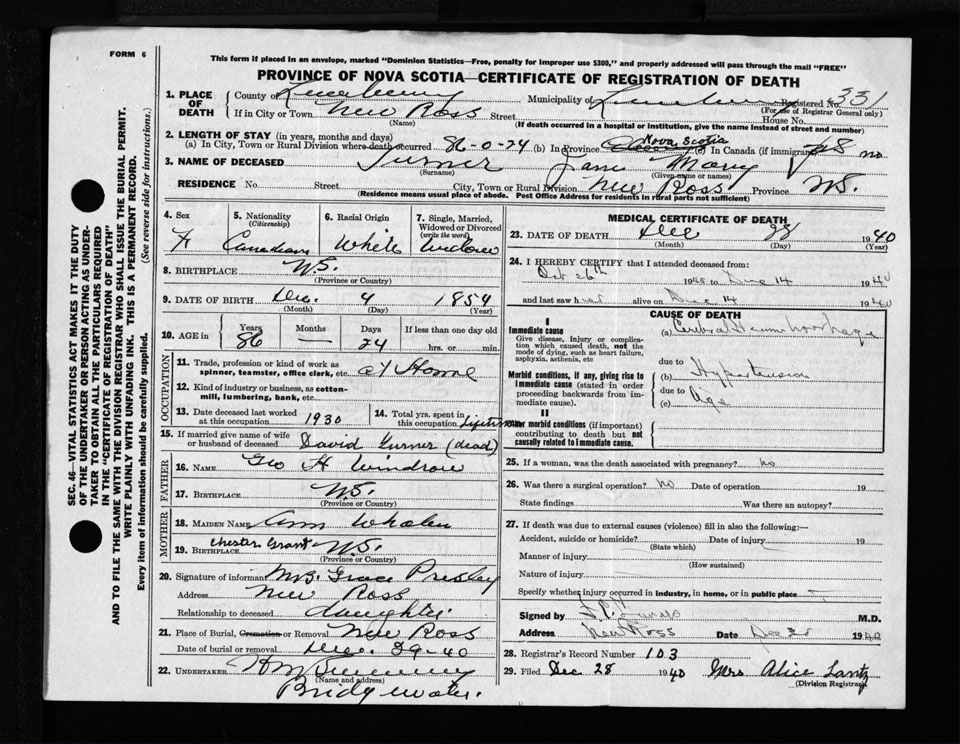 FORM 6
This form if placed in an envelope, marked "Dominion Statistics—Free, penalty for improper use $300," and properly addressed will pass through the mail "FREE"
PROVINCE OF NOVA SCOTIA—CERTIFICATE OF REGISTRATION OF DEATH
1. PLACE OF DEATH
County of Lunenburg Municipality of Registered No. 331
(For use of Registrar General only)
If in City or Town New Ross Street House No.
(Name) (If death occurred in a hospital or institution, give the name instead of street and number)
2. LENGTH OF STAY (in years, months and days)
(a) In City, Town or Rural Division where death occurred 86-0-24 (b) In Province Nova Scotia (c) In Canada (if immigrant)
3. NAME OF DECEASED Turner Jane Mary
(Surname) (Given name or names)
RESIDENCE No. Street City, Town or Rural Division New Ross Province N.S.
(Residence means usual place of abode. Post Office Address for residents in rural parts not sufficient)
4. Sex F
5. Nationality (Citizenship) Canadian
6. Racial Origin White
7. Single, Married, Widowed or Divorced (write the word) Widow
8. BIRTHPLACE N.S.
(Province or Country)
9. DATE OF BIRTH Dec. 4 1854
(Month) (Day) (Year)
10. AGE in Years Months Days If less than one day old
86 — 24 hrs. or min.
OCCUPATION
11. Trade, profession or kind of work as spinner, teamster, office clerk, etc. at Home
12. Kind of industry or business, as cotton-mill, lumbering, bank, etc.
13. Date deceased last worked at this occupation 1930
14. Total yrs. spent in this occupation Lifetime
15. If married give name of wife or husband of deceased David Turner (dead)
FATHER
16. NAME Geo H Windrow
17. BIRTHPLACE N.S.
(Province or Country)
MOTHER
18. MAIDEN NAME Ann Whalen
19. BIRTHPLACE Chester Grant N.S.
(Province or Country)
20. Signature of informant Mrs. Grace Presley
Address New Ross
Relationship to deceased daughter
21. Place of Burial, Cremation or Removal New Ross
Date of burial or removal Dec. 29-40
22. UNDERTAKER
(Name and address)
Bridgewater.
MEDICAL CERTIFICATE OF DEATH
23. DATE OF DEATH Dec 1940
(Month) (Day) (Year)
24. I HEREBY CERTIFY that I attended deceased from:
Oct 26th 1940 to Dec 14 1940
and last saw her alive on Dec 14 1940
CAUSE OF DEATH
I
Immediate cause
Give disease, injury or complication which caused death, not the mode of dying, such as heart failure, asphyxia, asthenia, etc
(a) Cerebral Haemhorrhage
due to
Morbid conditions, if any, giving rise to immediate cause (stated in order proceeding backwards from immediate cause).
(b) Hypertension
due to
(c) Age
II
Other morbid conditions (if important) contributing to death but not causally related to immediate cause.
25. If a woman, was the death associated with pregnancy? no
26. Was there a surgical operation? No Date of operation 19
State findings Was there an autopsy?
27. If death was due to external causes (violence) fill in also the following:—
Accident, suicide or homicide? Date of injury 19
(State which)
Manner of injury
(How sustained)
Nature of injury
Specify whether injury occurred in industry, in home, or in public place
Signed by M.D.
Address New Ross Date Dec 28 1940
28. Registrar's Record Number 103
29. Filed Dec 28 1940 Mrs Alice Lantz
(Division Registrar)
SEC. 46—VITAL STATISTICS ACT MAKES IT THE DUTY
OF THE UNDERTAKER OR PERSON ACTING AS UNDER-
TAKER TO OBTAIN ALL THE PARTICULARS REQUIRED
IN THE "CERTIFICATE OF REGISTRATION OF DEATH"
AND TO FILE THE SAME WITH THE DIVISION REGISTRAR WHO SHALL ISSUE THE BURIAL PERMIT.
WRITE PLAINLY WITH UNFADING INK. THIS IS A PERMANENT RECORD.
Every item of information should be carefully supplied. (See reverse side for instructions.)